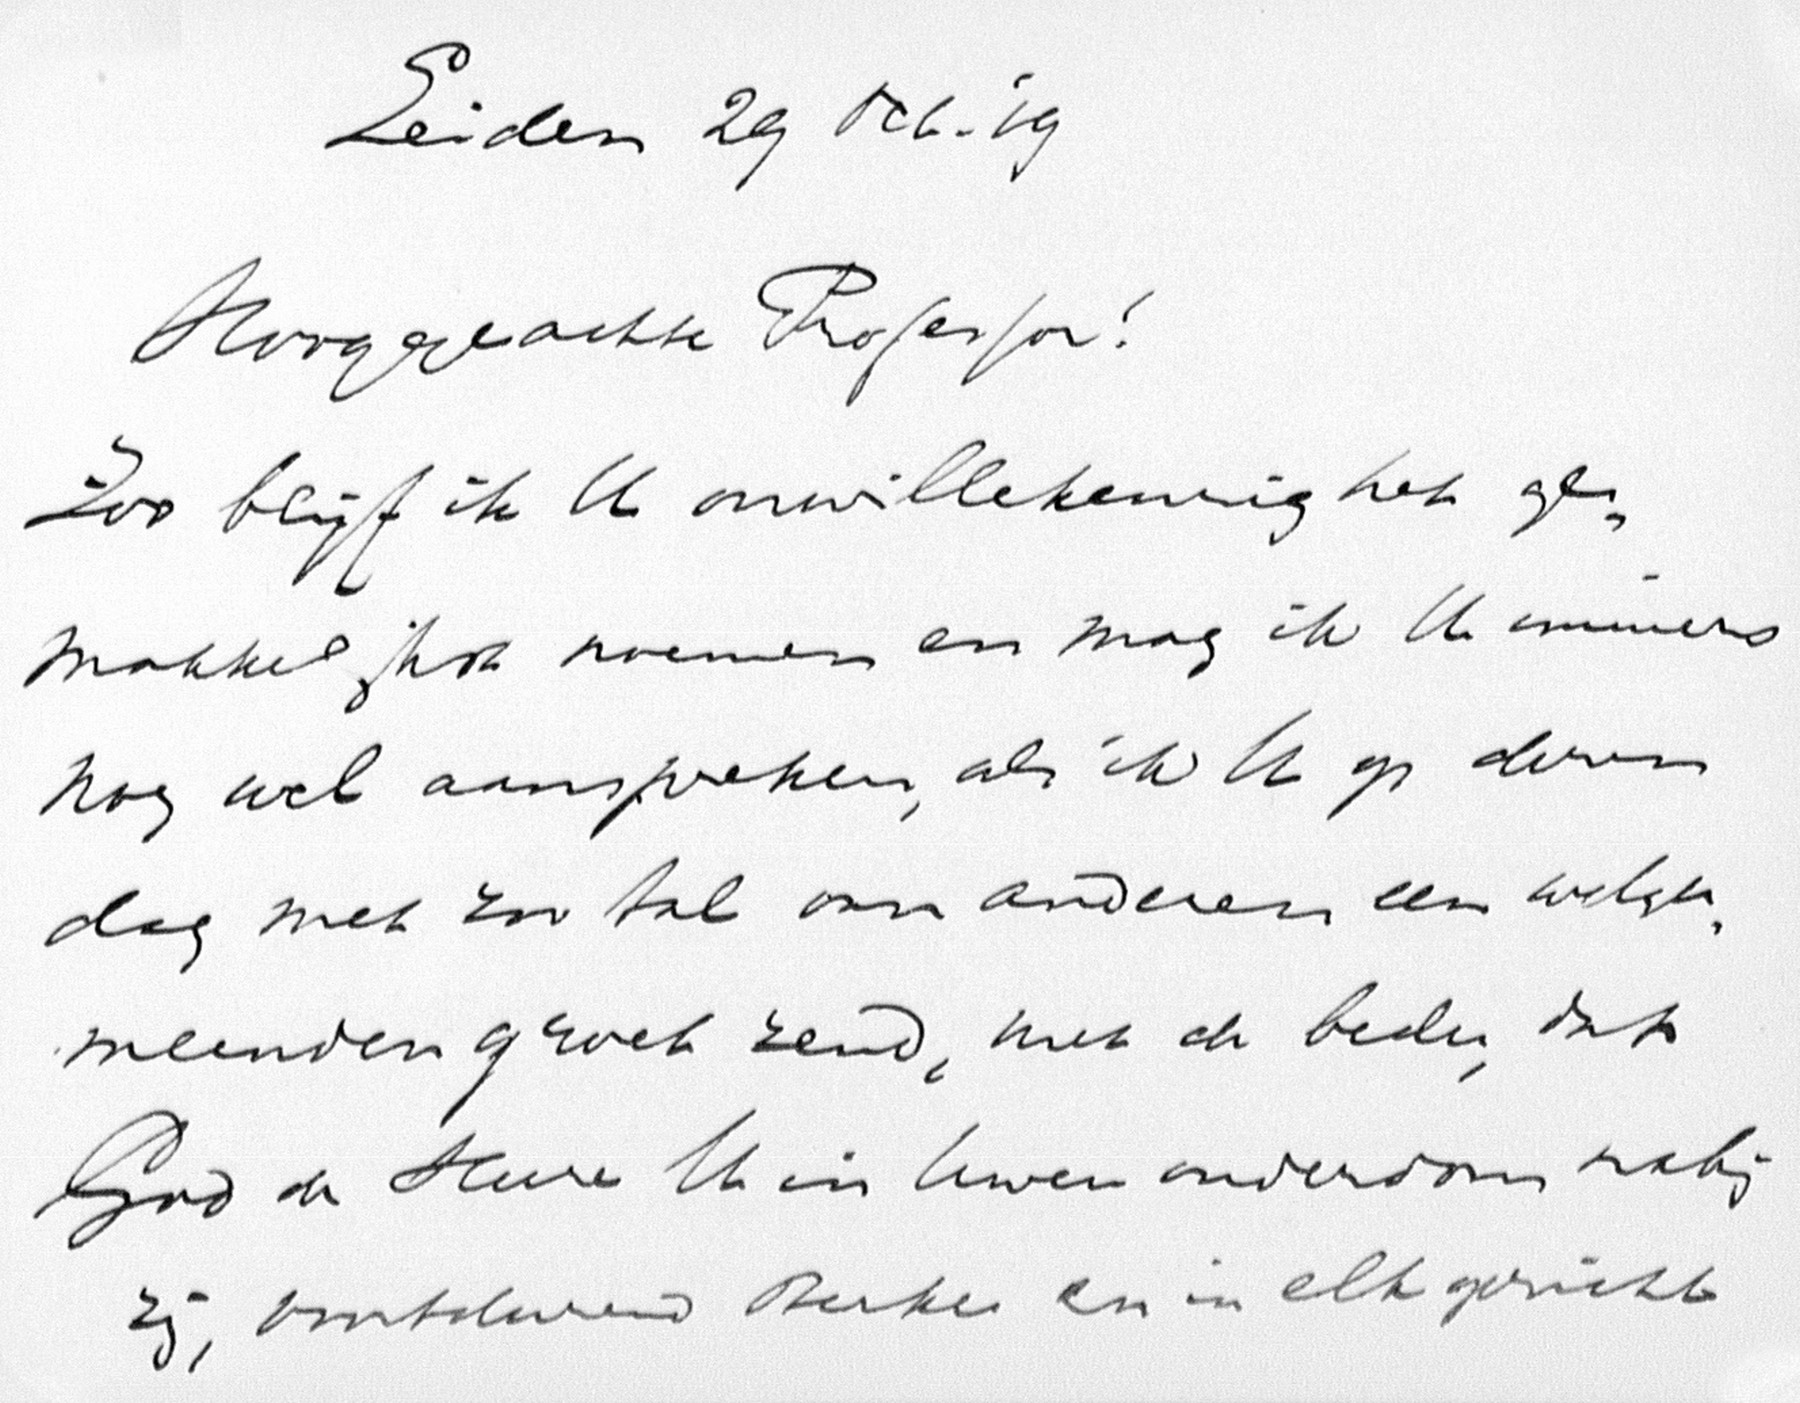 Leiden 29 Oct. 19
Hooggeachte Professor!
Zoo blijf ik U onwillekeurig het ge„
makkelijkst noemen en mag ik U immers
nog wel aanspreken, als ik U op dezen
dag met zoo tal van anderen een welge„
meenden groet zend, met de bede, dat
God de Heere U in Uwen ouderdom nabij
zij, voortdurend sterke en in elk gericht